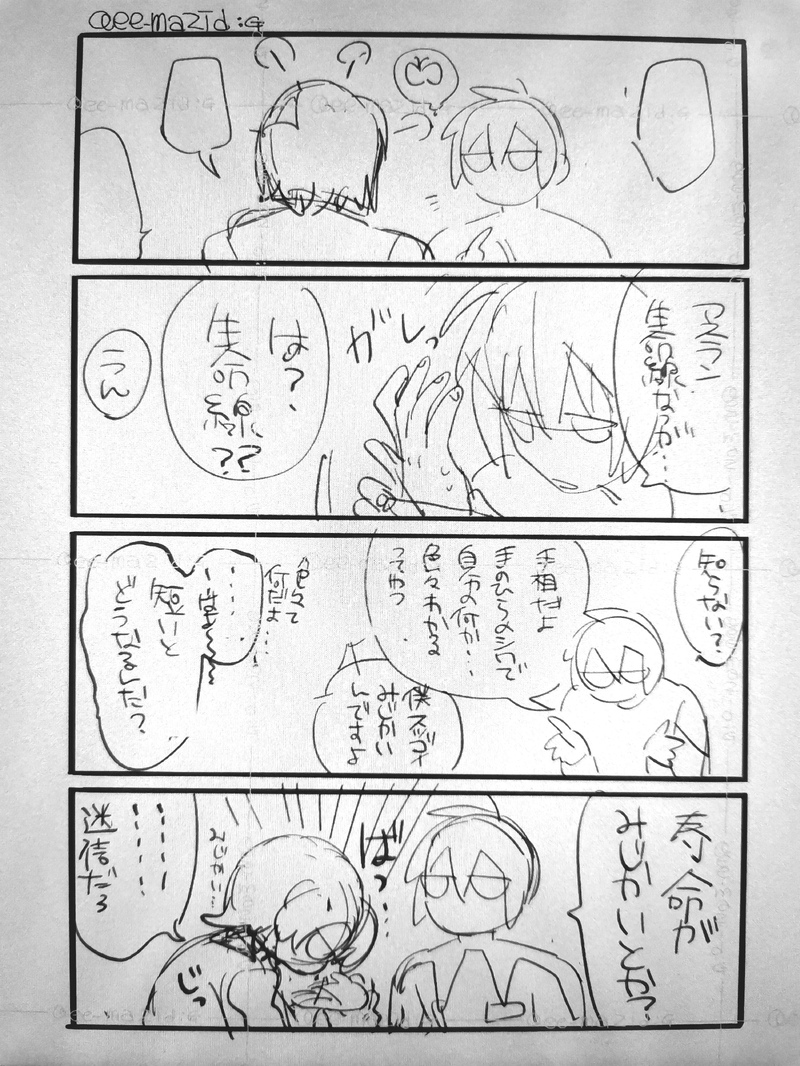 @ee-mazid:a
アスラン
生命線ながっ…
ガしっ
は？
生命線
??
うん
知らない？
手相だよ
手のひらのシワで
自分の何か…
色々わかる
ってやつ
僕スッゴイ
みじかい
んですよ
色々て
何だよ…
…はー
短いと
どうなるんだ？
寿命が
みじかいとか？
ばっ…
みじかい…
じっ
…………
迷信だろ